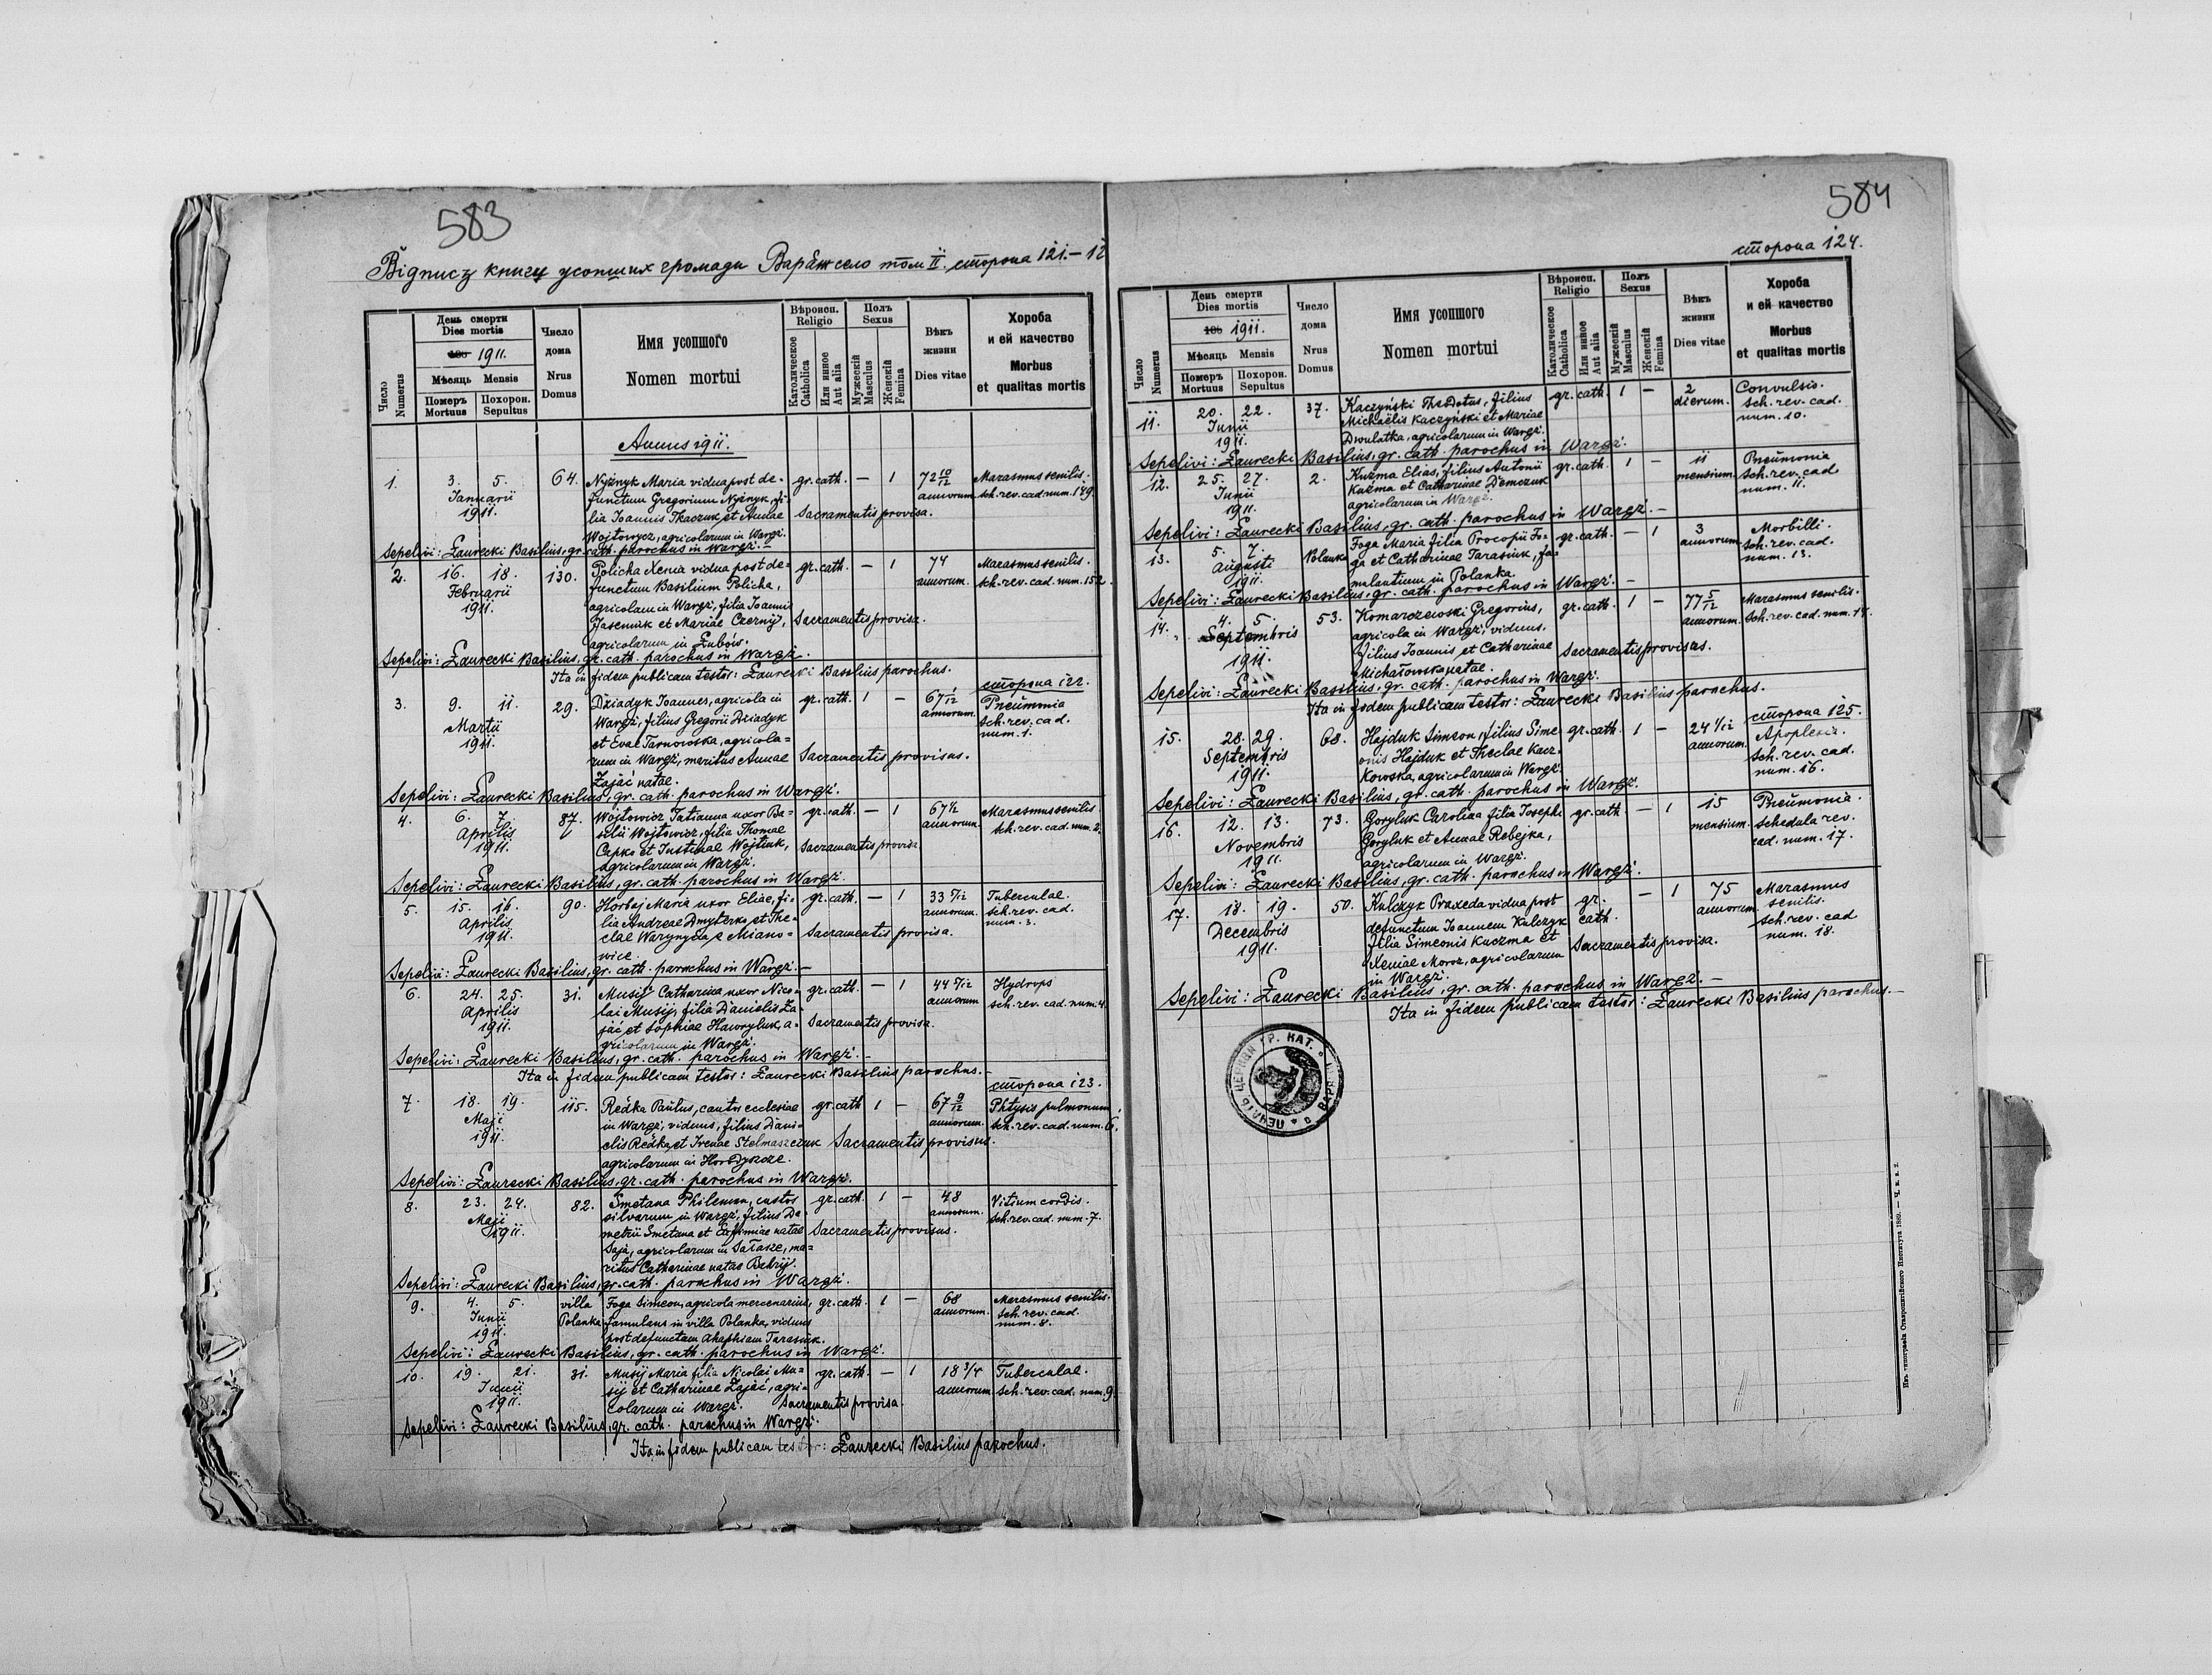 583
Відпись книги усопших громади Варяж село том II. сторона 121.–12
День смерти
Dies mortis
1911.
Мѣсяць Mensis
Померъ
Mortuus
Похорон.
Sepultus
Число
Numerus
Число
дома
Nrus
Domus
Имя усопшого
Nomen mortui
Вѣроисп.
Religio
Католическое
Catholica
Или инное
Aut alia
Полъ
Sexus
Мужескій
Masculus
Женскій
Femina
Вѣкъ
жизни
Dies vitae
Хороба
и ей качество
Morbus
et qualitas mortis
Annus 1911.
1. 3. 5. 64. Nyżnyk Maria vidua post de- gr. cath. — 1 72 10/12 Marasmus senilis.
Januarii functum Gregorium Nyżnyk, fi- annorum sch. rev. cad. num. 149.
1911. lia Joannis Tkaczuk et Annae Sacramentis provisa.
Wojtowycz, agricolarum in Waręż.
Sepelivi: Łaurecki Basilius, gr. cath. parochus in Waręż. —
2. 16. 18. 130. Policha Xenia vidua post de- gr. cath. — 1 74 Marasmus senilis.
Februarii functum Basilium Policha, annorum. sch. rev. cad. num. 152.
1911. agricolam in Waręż, filia Joannis
Jaseniuk et Mariae Czernij, Sacramentis provisa.
agricolarum in Łubów.
Sepelivi: Łaurecki Basilius, gr. cath. parochus in Waręż.
Ita in fidem publicam testor: Łaurecki Basilius parochus.
сторона 122.
3. 9. 11. 29. Dziadyk Joannes, agricola in gr. cath. 1 — 67 1/12 Pneumonia
Martii Waręż, filius Gregorii Dziadyk annorum. sch. rev. cad.
1911. et Evae Tarnowska, agricola- num. 1.
rum in Waręż, maritus Annae Sacramentis provisus.
Zając natae.
Sepelivi: Łaurecki Basilius, gr. cath. parochus in Waręż.
4. 6. 7. 87. Wojtowicz Tatianna uxor Ba- gr. cath. — 1 67 1/2 Marasmus senilis
Aprilis silii Wojtowicz, filia Thomae annorum. sch. rev. cad. num. 2.
1911. Capko et Justinae Wojtiuk, Sacramentis provisa
agricolarum in Waręż.
Sepelivi: Łaurecki Basilius, gr. cath. parochus in Waręż.
5. 15. 16. 90. Horbaj Maria uxor Eliae, fi- gr. cath. — 1 33 7/12 Tuberculae.
Aprilis lia Andreae Dmyterko et The- annorum. sch. rev. cad.
1911. clae Warynycia, e Miano- Sacramentis provisa. num. 3.
wice.
Sepelivi: Łaurecki Basilius, gr. cath. parochus in Waręż. —
6. 24. 25. 31. Musij Catharina uxor Nico- gr. cath. — 1 44 7/12 Hydrops
Aprilis lai Musij, filia Danielis Za- annorum sch. rev. cad. num. 4.
1911. jąć et Sophiae Hawryluk, a- Sacramentis provisa.
gricolarum in Waręż.
Sepelivi: Łaurecki Basilius, gr. cath. parochus in Waręż. —
Ita in fidem publicam testor: Łaurecki Basilius parochus. —
сторона 123.
7. 18. 19. 115. Redka Paulus, cantor ecclesiae gr. cath 1 — 67 9/12 Phtysis pulmonum
Maji in Waręż, viduus, filius Dani- annorum. sch. rev. cad. num. 6.
1911. elis Redka et Irenae Stelmaszczuk Sacramentis provisus.
agricolarum in Horodyszcze.
Sepelivi: Łaurecki Basilius, gr. cath. parochus in Waręż.
8. 23. 24. 82. Smetana Philemon, custos gr. cath. 1 — 48 Vitium cordis.
Maji silvarum in Waręż, filius De- annorum. sch. rev. cad. num. 7.
1911. metrii Smetana et Eufimiae natae Sacramentis provisus.
Saja, agricolarum in Sałasze, ma-
ritus Catharinae natae Bahrij.
Sepelivi: Łaurecki Basilius, gr. cath. parochus in Waręż.
9. 4. 5. villa Foga Simeon, agricola mercenarius, gr. cath. 1 — 68 Marasmus senilis.
Junii Polanka famulans in villa Polanka, viduus annorum. sch. rev. cad.
1911. post defunctam Ahaphiam Tarasiuk. num. 8.
Sepelivi: Łaurecki Basilius, gr. cath. parochus in Waręż.
10. 19. 21. 31. Musij Maria filia Nicolai Mu- gr. cath. — 1 18 3/4 Tuberculae.
Junii sij et Catharinae Zając, agri- annorum sch. rev. cad. num. 9.
1911. colarum in Waręż. Sacramentis provisa
Sepelivi: Łaurecki Basilius, gr. cath. parochus in Waręż.
Ita in fidem publicam testor: Łaurecki Basilius parochus.
584
сторона 124.
День смерти
Dies mortis
1911.
Мѣсяць Mensis
Померъ
Mortuus
Похорон.
Sepultus
Число
Numerus
Число
дома
Nrus
Domus
Имя усопшого
Nomen mortui
Вѣроисп.
Religio
Католическое
Catholica
Или инное
Aut alia
Полъ
Sexus
Мужескій
Masculus
Женскій
Femina
Вѣкъ
жизни
Dies vitae
Хороба
и ей качество
Morbus
et qualitas mortis
11. 20. 22. 37. Kaczyński Theodotus, filius gr. cath. 1 — 2 Convulsio.
Junii Michaëlis Kaczyński et Mariae dierum. sch. rev. cad.
1911. Dwulatka, agricolarum in Waręż. num. 10.
Sepelivi: Łaurecki Basilius, gr. cath. parochus in Waręż.
12. 25. 27. 2. Kuźma Elias, filius Antonii gr. cath. 1 — 11 Pneumonia
Junii Kuźma et Catharinae Demczuk mensium. sch. rev. cad
1911. agricolarum in Waręż. num. 11.
Sepelivi: Łaurecki Basilius, gr. cath. parochus in Waręż. —
13. 5. 7. Polanka Foga Maria filia Procopii Fo- gr. cath. — 1 3 Morbilli.
Augusti ga et Catharinae Tarasiuk, fa- annorum. sch. rev. cad.
1911. mulantium in Polanka. num. 13.
Sepelivi: Łaurecki Basilius, gr. cath. parochus in Waręż. —
14. 4. 5. 53. Komarzewski Gregorius, gr. cath. 1 — 77 5/12 Marasmus senilis.
Septembris agricola in Waręż, viduus, annorum. sch. rev. cad. num. 14.
1911. filius Joannis et Catharinae Sacramentis provisus.
Michałowska natae.
Sepelivi: Łaurecki Basilius, gr. cath. parochus in Waręż.
Ita in fidem publicam testor: Łaurecki Basilius parochus.
сторона 125.
15. 28. 29. 68. Hajduk Simeon, filius Sime gr. cath. 1 — 24 1/12 Apoplexia.
Septembris onis Hajduk et Theclae Kacz- annorum. sch. rev. cad.
1911. kowska, agricolarum in Waręż. num. 16.
Sepelivi: Łaurecki Basilius, gr. cath. parochus in Waręż.
16. 12. 13. 73. Goryluk Carolina filia Josephi gr. cath — 1 15 Pneumonia.
Novembris Goryluk et Annae Rebejka, mensium. schedula rev.
1911. agricolarum in Waręż. cad. num. 17.
Sepelivi: Łaurecki Basilius, gr. cath. parochus in Waręż.
17. 18. 19. 50. Kulczyk Praxeda vidua post gr. — 1 75 Marasmus
Decembris defunctum Joannem Kulczyk cath. annorum. senilis.
1911. filia Simeonis Kuczma et Sacramentis provisa. sch. rev. cad
Xeniae Moroz, agricolarum num. 18.
in Waręż.
Sepelivi: Łaurecki Basilius, gr. cath. parochus in Waręż. —
Ita in fidem publicam testor: Łaurecki Basilius parochus. —
ПЕЧАТЬ ЦЕРКВИ ГР. КАТ.
типографіи Ставропигійского Института 1889.